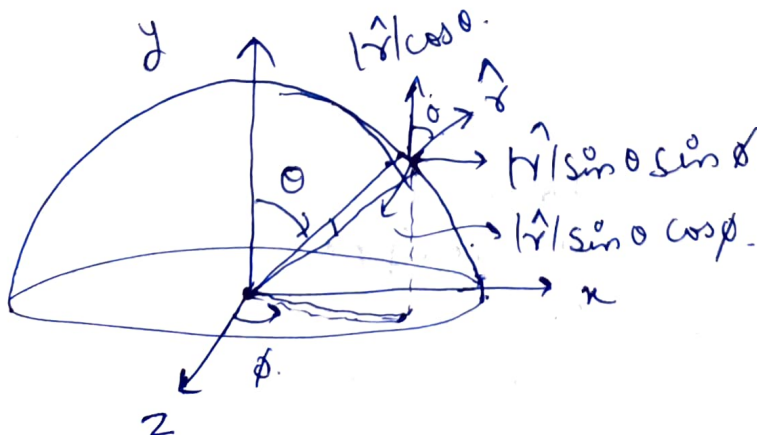 |r̂|cosθ.
y
r̂
θ
θ
|r̂|sinθ sinϕ
|r̂|sinθ cosϕ.
x
ϕ.
z